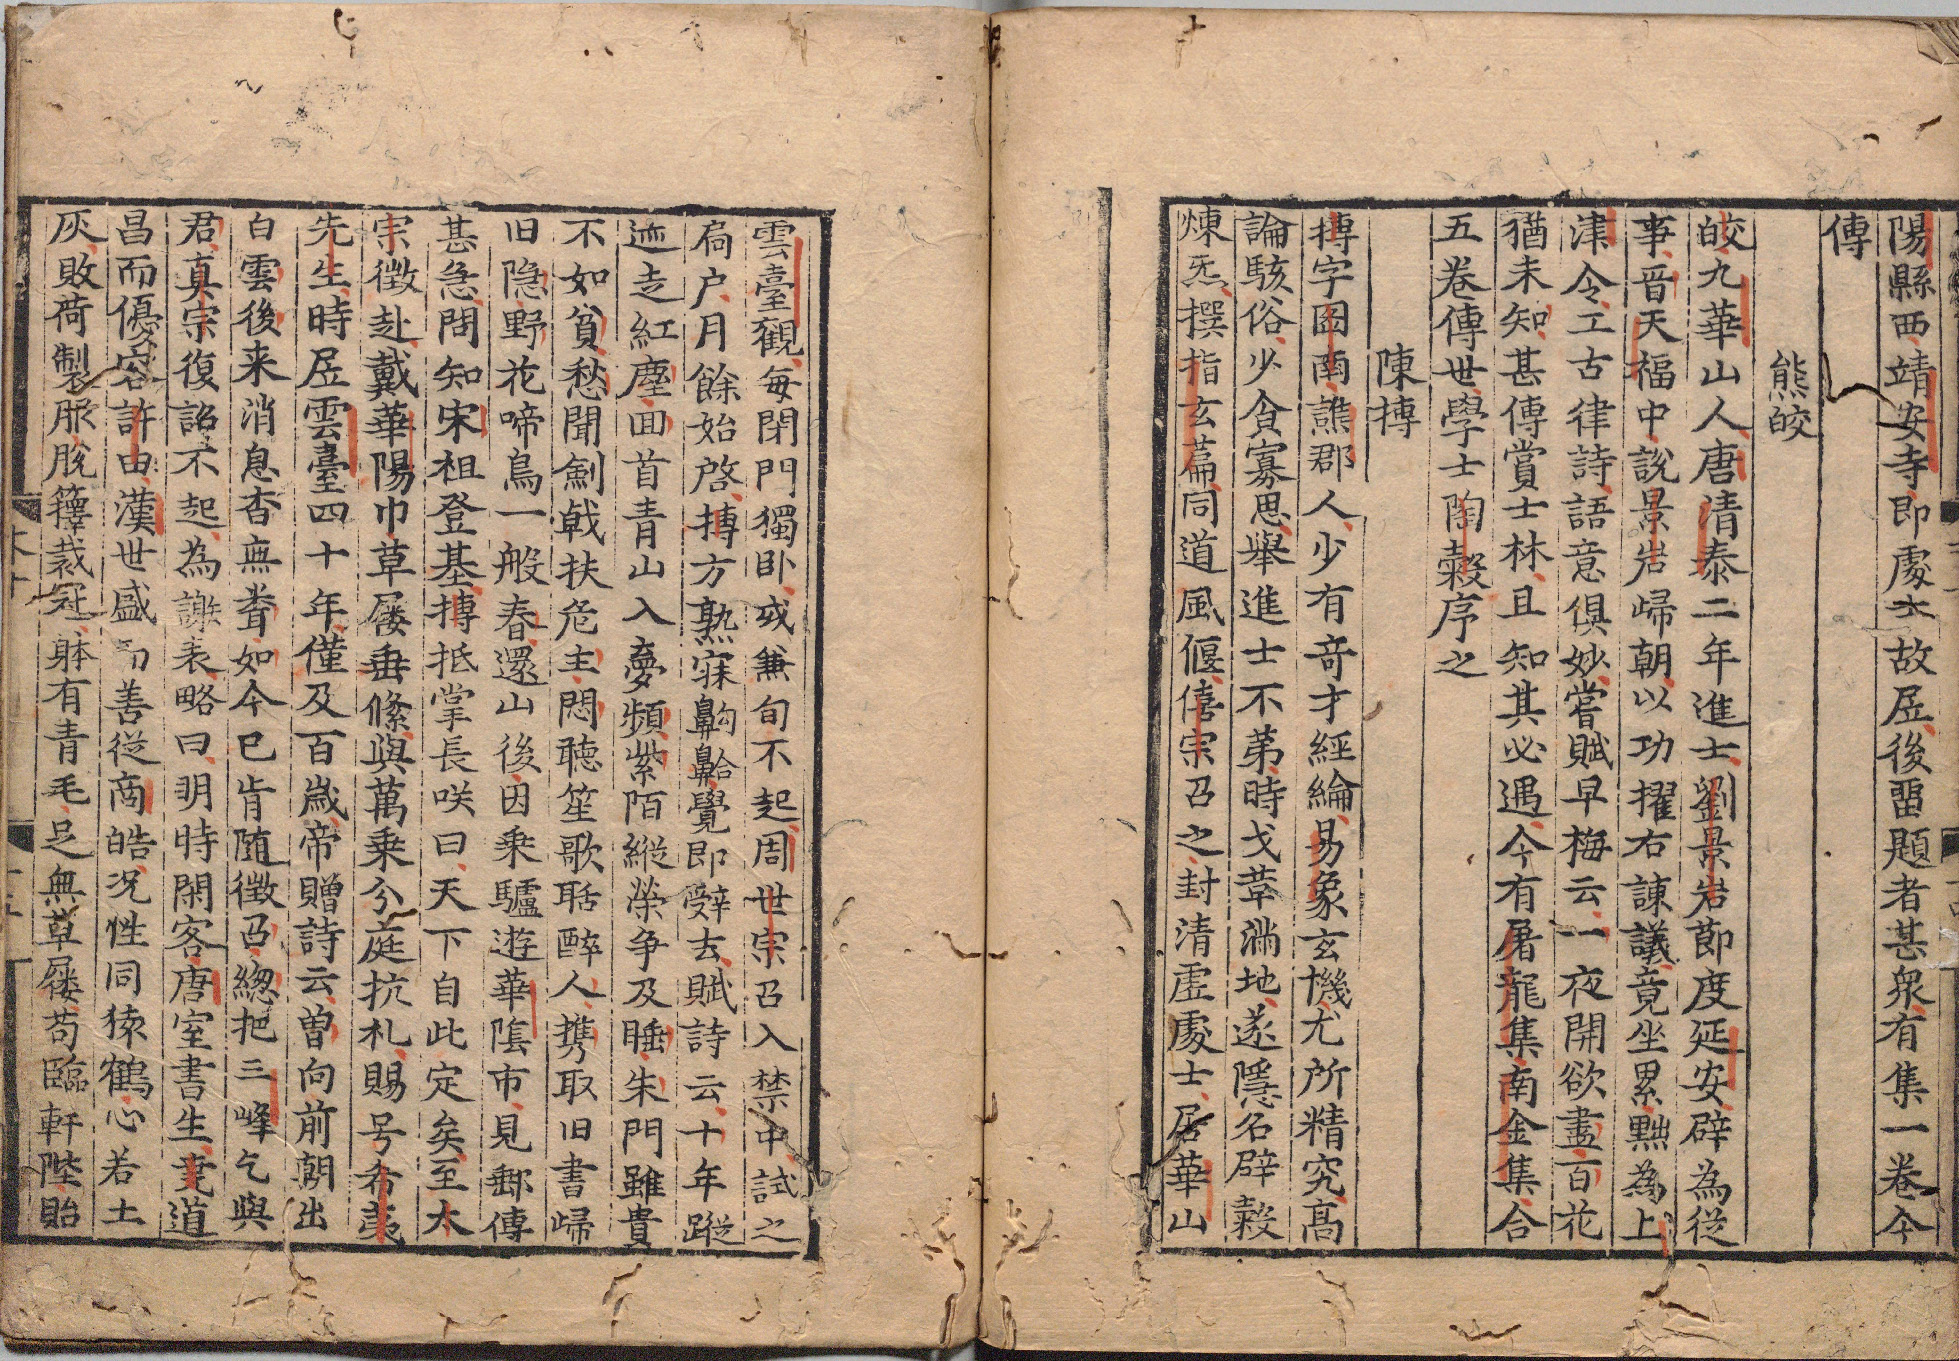 陽縣西靖安寺即處士故居後畱題者甚衆有集一卷今
傳
熊皎
皎九華山人唐清泰二年進士劉景岩節度延安辟為從
事晋天福中說景岩歸朝以功擢右諫議竟坐累黜為上
津令工古律詩語意俱妙嘗賦早梅云一夜開欲盡百花
猶未知甚傳賞士林且知其必遇今有屠龍集南金集合
五卷傳世學士陶榖序之
陳摶
摶字图南譙郡人少有竒才經綸易象玄機尤所精究高
論駭俗少貪寡思舉進士不第時戈革滿地遂隱名辟榖
煉炁撰指玄篇同道風偃僖宗召之封清虛處士居華山
雲臺觀每閉門獨卧或兼旬不起周世宗召入禁中試之
扃户月餘始啓摶方熟寐鼻齁鼾覺即辤去賦詩云十年蹤
迹走紅塵回首青山入夢頻紫陌縱榮争及睡朱門雖貴
不如貧愁聞劍戟扶危主悶聽笙歌聒醉人携取旧書歸
旧隐野花啼鳥一般春還山後因乘驢遊華陰市見郵傳
甚急問知宋祖登基摶抵掌長咲曰天下自此定矣至太
宗徵赴戴華陽巾草屨垂絛與萬乗分庭抗札賜号希夷
先生時居雲臺四十年僅及百歲帝贈詩云曽向前朝出
白雲後来消息杳無聞如今已肯随徵召緫把三峰乞與
君真宗復詔不起為謝表略曰明時閑客唐室書生堯道
昌而優容許由漢世盛而善從商皓况性同猿鶴心若土
灰敗荷製服脫籜裁冠躰有青毛足無草屨苟臨軒陛貽